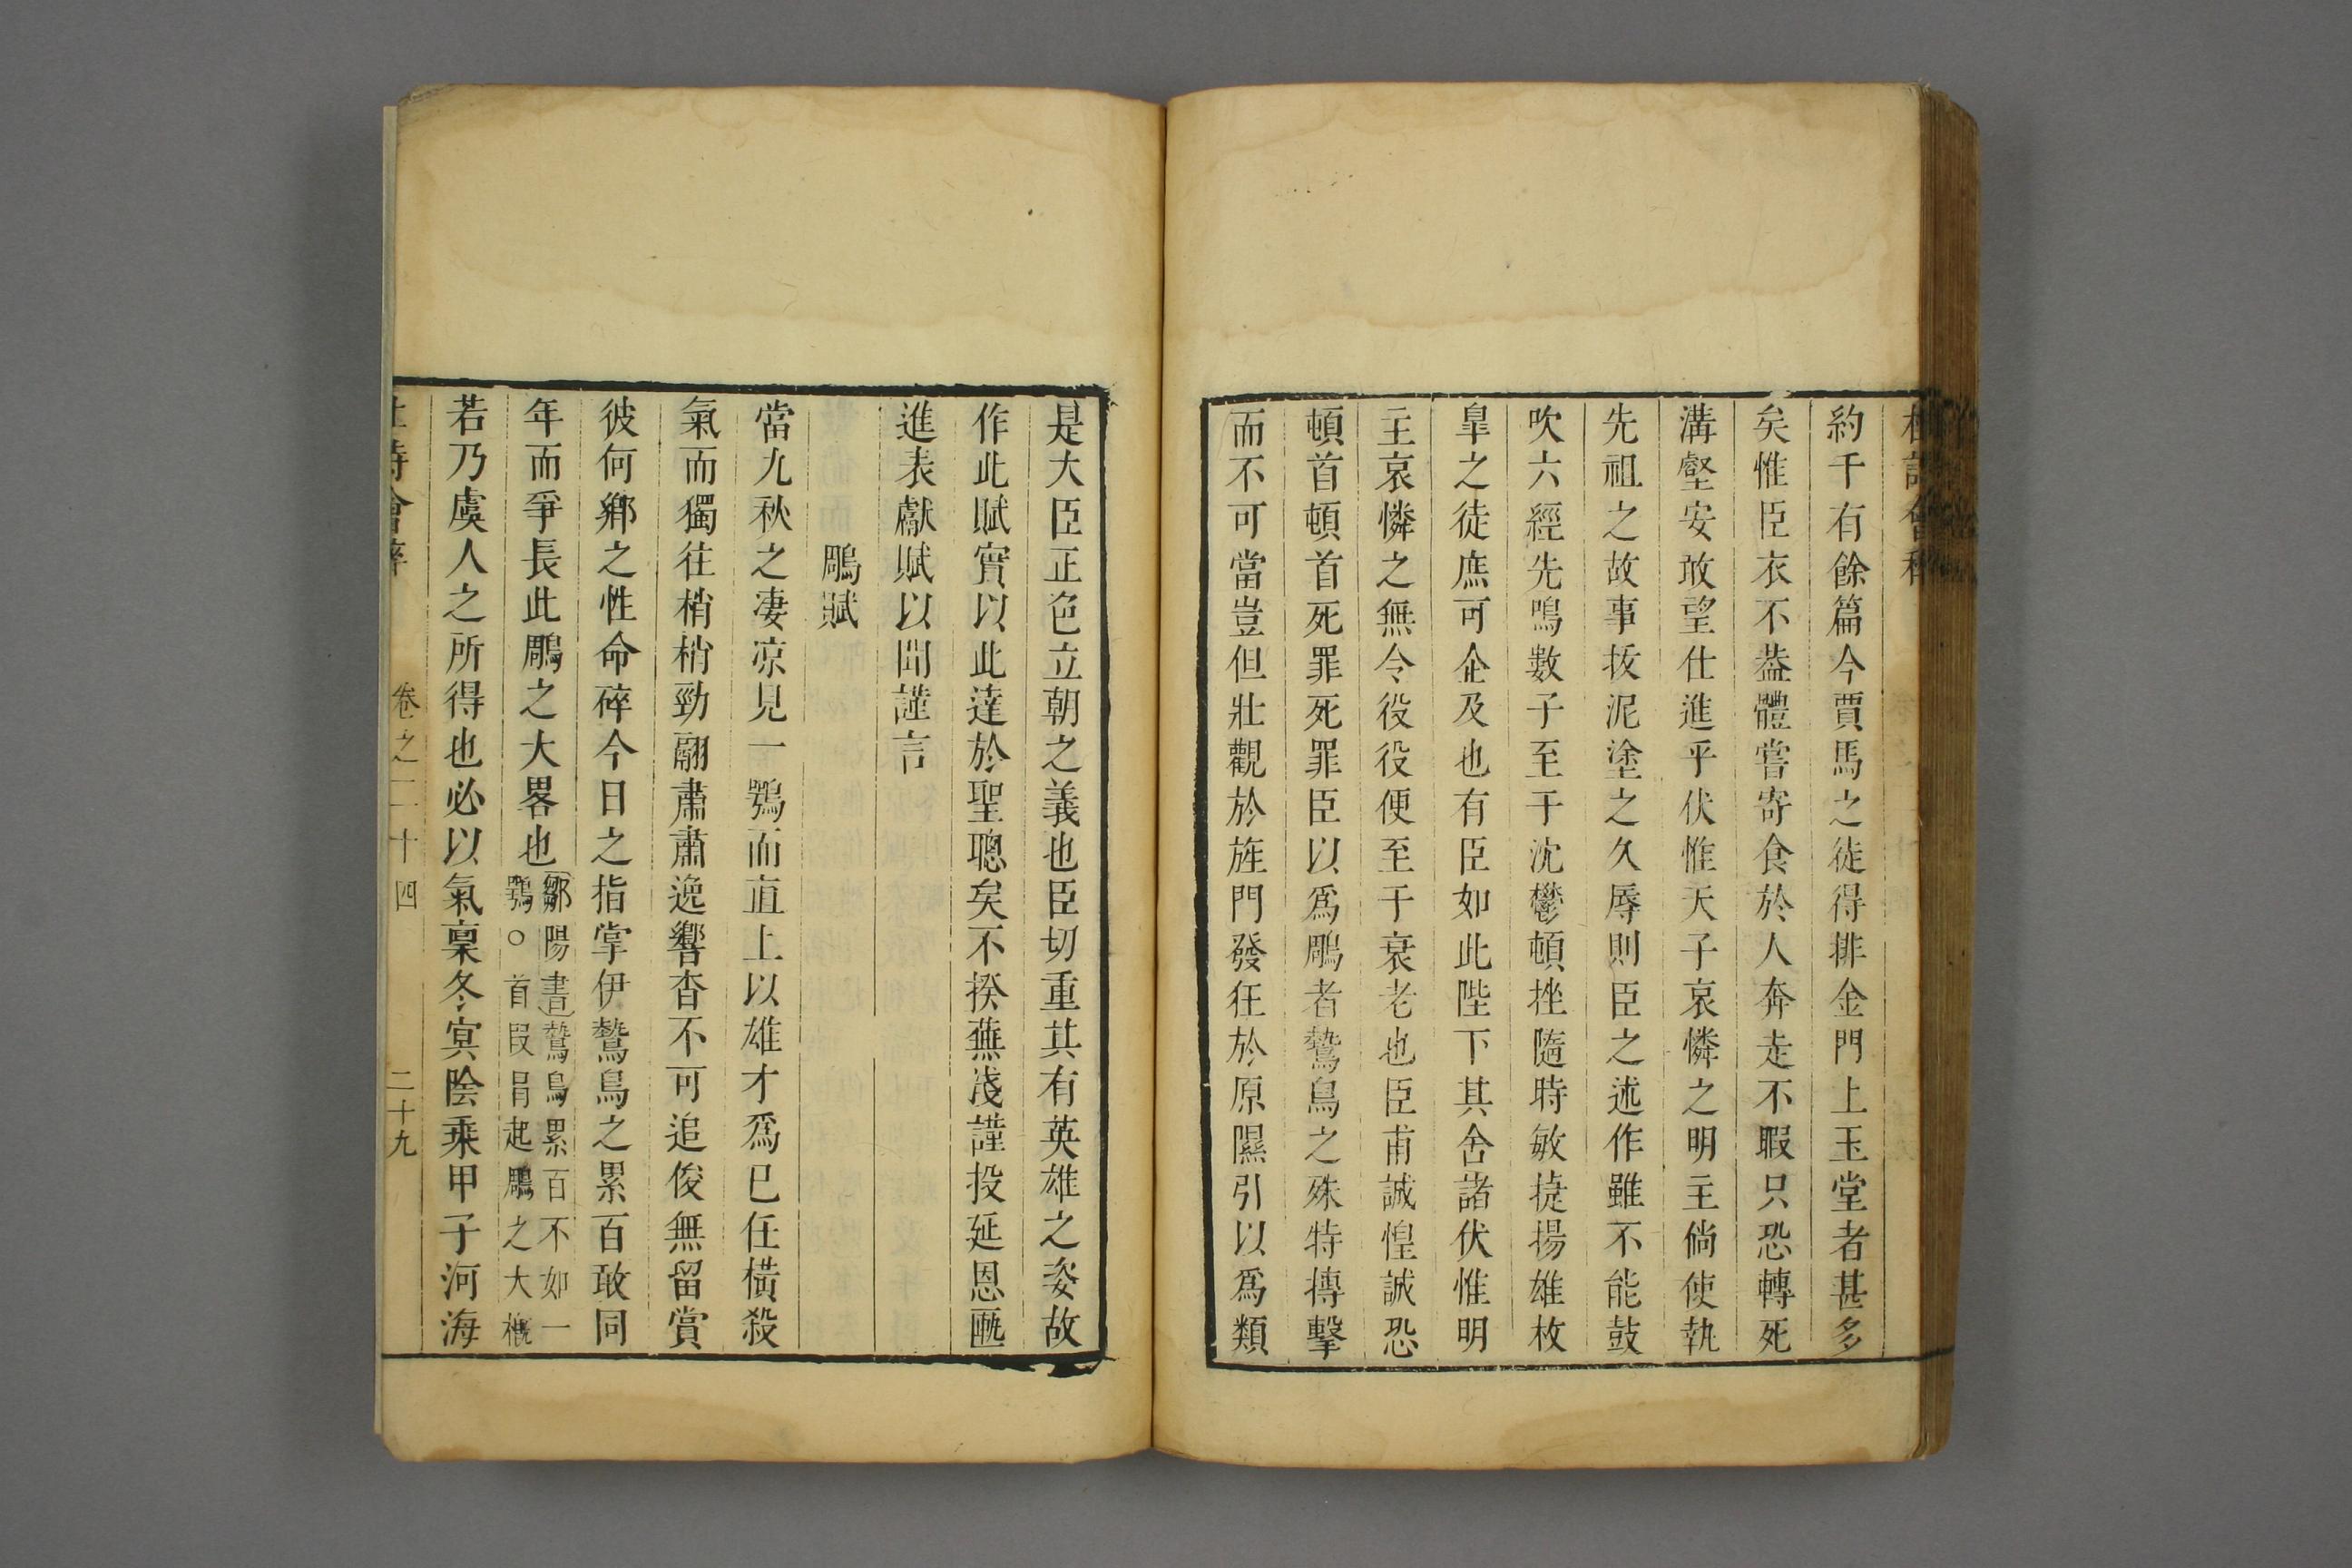 約千有餘篇今賈馬之徒得排金門上玉堂者甚多
矣惟臣衣不葢體嘗寄食於人奔走不暇只恐轉死
溝壑安敢望仕進乎伏惟天子哀憐之明主倘使執
先祖之故事拔泥塗之久辱則臣之述作雖不能鼓
吹六經先鳴數子至于沈鬱頓挫隨時敏捷揚雄枚
臯之徒庶可企及也有臣如此陛下其舍諸伏惟明
主哀憐之無令役役便至于衰老也臣甫誠惶誠恐
頓首頓首死罪死罪臣以爲鵰者鷙鳥之殊特摶擊
而不可當豈但壯觀於旌門發狂於原隰引以爲類
是大臣正色立朝之義也臣切重其有英雄之姿故
作此賦實以此達於聖聰矣不揆蕪淺謹投延恩匭
進表獻賦以聞謹言
鵰賦
當九秋之凄凉見一鶚而直上以雄才爲已任橫殺
氣而獨往梢梢勁翮肅肅逸響杳不可追俊無留賞
彼何鄉之性命碎今日之指掌伊鷙鳥之累百敢同
年而爭長此鵰之大畧也
鄒陽書鷙鳥累百不如一
鶚○首段冐起鵰之大概
若乃虞人之所得也必以氣禀冬冥陰乘甲子河海
卷之二十四 二十九